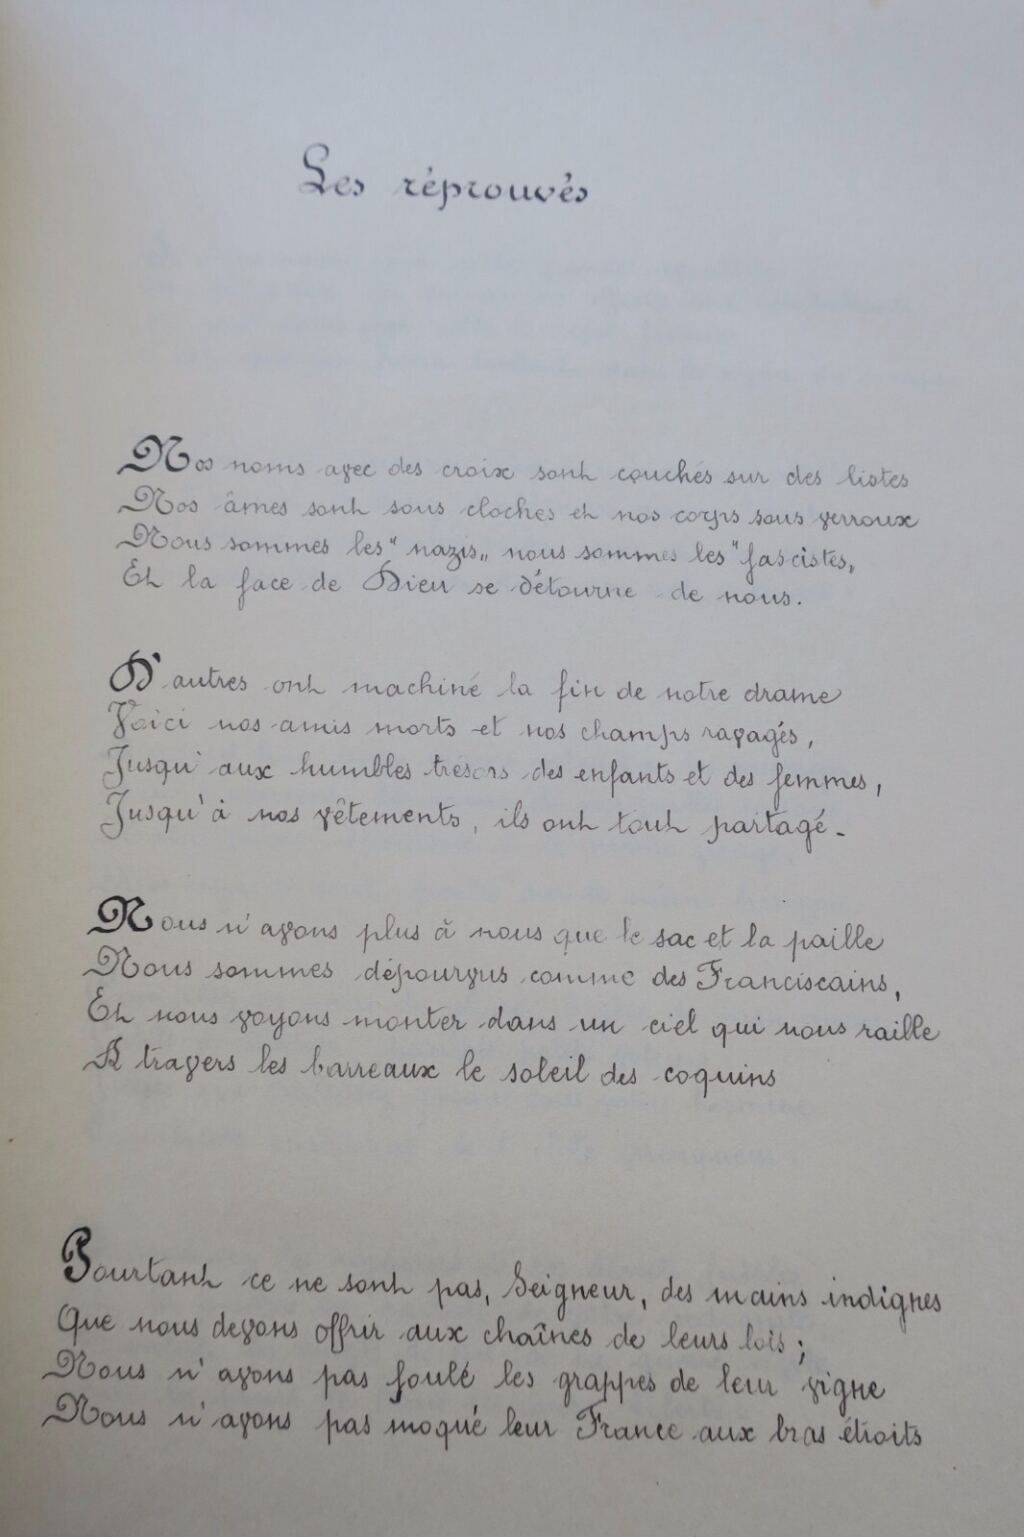 Les réprouvés
Nos noms avec des croix sont couchés sur des listes
Nos âmes sont sous cloches et nos corps sous verroux
Nous sommes les " nazis„ nous sommes les "fascistes„
Et la face de Dieu se détourne de nous.
D'autres ont machiné la fin de notre drame
Voici nos amis morts et nos champs ravagés,
Jusqu'aux humbles trésors des enfants et des femmes,
Jusqu'à nos vêtements, ils ont tout partagé.
Nous n'avons plus à nous que le sac et la paille
Nous sommes dépourvus comme des Franciscains,
Et nous voyons monter dans un ciel qui nous raille
A travers les barreaux le soleil des coquins
Pourtant ce ne sont pas, Seigneur, des mains indignes
Que nous devons offrir aux chaînes de leurs lois;
Nous n'avons pas foulé les grappes de leur vigne
Nous n'avons pas moqué leur France aux bras étroits